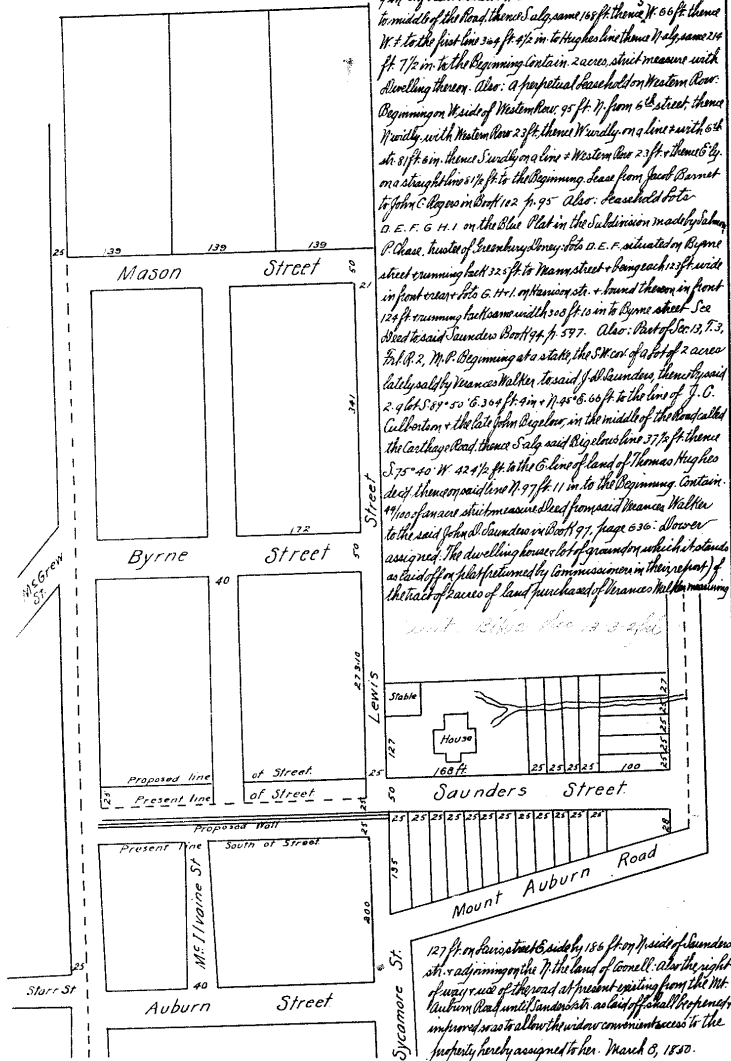 to middle of the Road, thence S. alg. same 168 ft. thence W. 66 ft. thence
W. ∓ to the first line 364 ft. 4½ in. to Hughes line thence N. alg. same 214
ft. 7½ in. to the Beginning Contain. 2 acres, strict measure with
Dwelling thereon. Also: A perpetual Leasehold on Western Row:
Beginning on W. side of Western Row, 95 ft. N. from 6th street. thence
N'wdly. with Western Row 23 ft, thence W'wrdly. on a line ∓ with 6th
str. 81 ft. 6 in. thence S'wrdly on a line ∓ Western Row 23 ft. + thence E'ly.
on a straight line 81½ ft. to the Beginning. Lease from Jacob Barnet
to John C. Rogers in Book 102 p. 95 Also: Leasehold Lots
D. E. F. G. H. I. on the Blue Plat in the Subdivision made by Salmon
P. Chase, trustee of Greenbury Dorsey: Lots D. E. F. situated on Byrne
street + running back 325 ft to Mann street + being each 123 ft. wide
in front + rear + Lots G. H. + I. on Harrison str. + bound thereon in front
124 ft + running back same width 308 ft 10 in to Byrne street See
Deed to said Saunders Book 94, p. 597. Also: Part of Sec 13, T. 3,
Frl. R. 2, M. P. Beginning at a stake, the S.W. cor. of a Lot of 2 acres
lately sold by Verances Walker to said J. D. Saunders, thence by said
2 a lot S. 89° 50' E. 364 ft. 4 in + N. 45° E. 66 ft. to the line of J. C.
Culbertson + the late John Bigelow, in the middle of the Road called
the Carthage Road. thence S. alg said Bigelows line 37½ ft. thence
S. 75° 40' W. 424½ ft. to the E. line of land of Thomas Hughes
dec'd. thence on said line N. 97 ft. 11 in. to the Beginning. Contain.
49/100 of an acre strict measure Deed from said Verances Walker
to the said John D. Saunders in Book 97, page 636: Dower
assigned: The dwelling house + lot of ground on which it stands
as laid off on plat (returned by Commissioners in their report) of
the tract of 2 acres of land purchased of Verances Walker measuring
25 139 139 139
Mason Street 50
21
341
Street
172
Byrne Street 50
McGrew
St.
40
273.10
Lewis
Stable
127
House
168 ft.
25 25 25 25
100
27
25
25
25
25
Proposed line of Street.
25
Present line of Street.
25
50
Saunders Street.
Proposed Wall
25
25 25 25 25 25 25 25 25 25 25 25
28
Present line South of Street
135
Mc Ilvaine St
200
Mount Auburn Road
25
Starr St
40
Auburn Street
Sycamore St.
127 ft. on Lewis street E. side by 186 ft. on N. side of Saunders
str. + adjoining on the N. the land of Conell: also the right
of way + use of the road at present existing from the Mt.
Auburn Road until Sanders str. as laid off shall be opened +
improved so as to allow the widow convenient access to the
property hereby assigned to her. March 8, 1850.